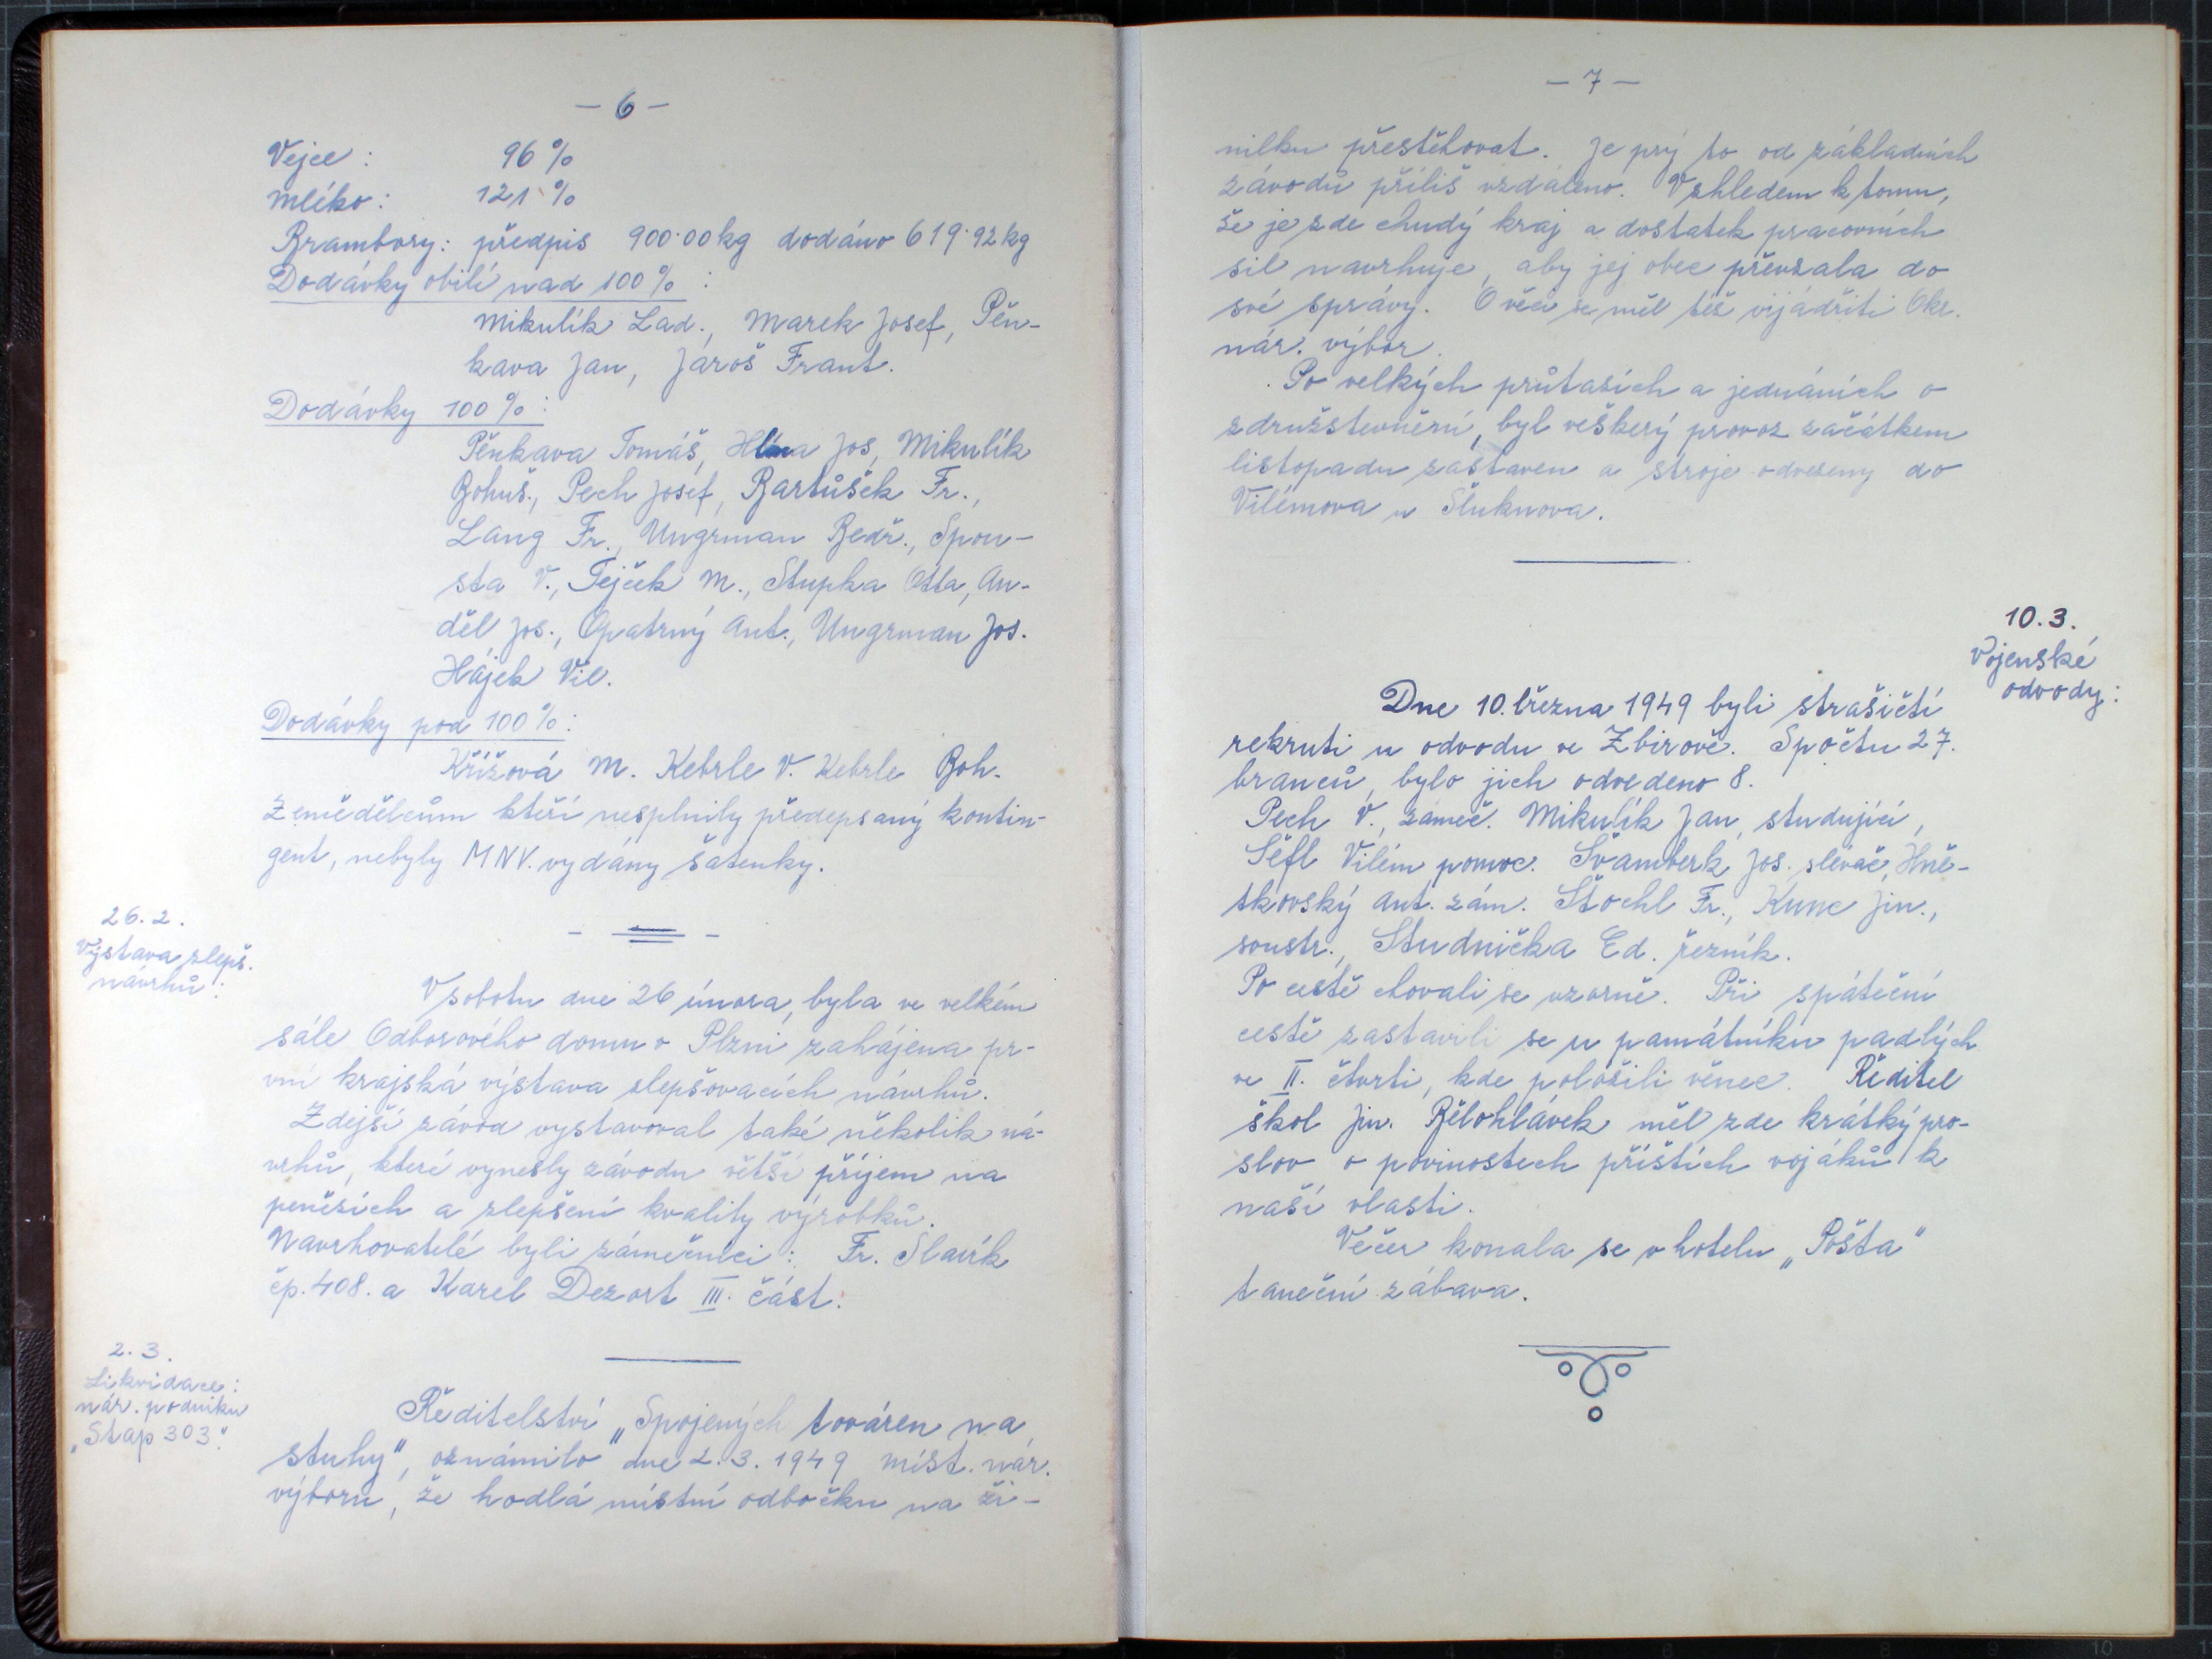 - 6 -
Vejce: 96 %
mléko: 121 %
Brambory: předpis 900·00 kg dodáno 619·92 kg
Dodávky obilí nad 100 % :
Mikulík Lad., Marek Josef, Pěn-
kava Jan, Jaroš Frant.
Dodávky 100 % :
Pěnkava Tomáš, Jos, Mikulík
Bohuš., Pech Josef, Bartůšek Fr.,
Lang Fr., Ungrman Bedř., Spon-
sta V., Tejček M., Stupka Otta, An-
děl Jos., Opatrný Ant., Ungrman Jos.
Hájek Vil.
Dodávky pod 100 % :
Křížová M. Kebrle V. Kebrle Boh.
Zemědělcům kteří nesplnily předepsaný kontin-
gent, nebyly MNV. vydány šatenky.
26.2.
Výstava zlepš.
návrhů:
V sobotu dne 26 února, byla ve velkém
sále Odborového domu v Plzni zahájena pr-
vní krajská výstava zlepšovacích návrhů.
Zdejší závod vystavoval také několik ná-
vrhů, které vynesly závodu větší příjem na
penězích a zlepšení kvality výrobků.
Navrhovatelé byli zámečníci: Fr. Slavík
čp. 408. a Karel Dezort III. část.
2.3.
Likvidace:
nár. podniku
„Stap 303".
Ředitelství „Spojených továren na
stuhy", oznámilo dne 2.3. 1949 míst. nár.
výboru, že hodlá místní odbočku na ži-
- 7 -
nilku přestěhovat. Je prý to od základních
závodů příliš vzdáleno. Vzhledem k tomu,
že je zde chudý kraj a dostatek pracovních
sil navrhuje, aby jej obec převzala do
své správy. O věci se měl též vijádřiti Okr.
nár. výbor.
Po velkých průtazích a jednáních o
združstevnění, byl veškerý provoz začátkem
listopadu zastaven a stroje odvezeny do
Vilémova u Šluknova.
10.3.
Vojenské
odvody:
Dne 10. března 1949 byli strašičtí
rekruti u odvodu ve Zbirově. Spočtu 27.
branců, bylo jich odvedeno 8.
Pech V., zámeč. Mikulík Jan, studující,
Šéfl Vilém pomoc. Švamberk Jos. slévač, Hně-
tkovský Ant. zám. Štochl Fr., Kunc Jin.,
soustr., Studnička Ed. řezník.
Po cestě chovali se vzorně. Při spáteční
cestě zastavili se u památníku padlých
ve II. čtvrti, kde položili věnec. Ředitel
škol Jin. Bělohlávek měl zde krátký pro-
slov o povinostech příštích vojáků k
naší vlasti.
Večer konala se v hotelu „Pošta"
taneční zábava.